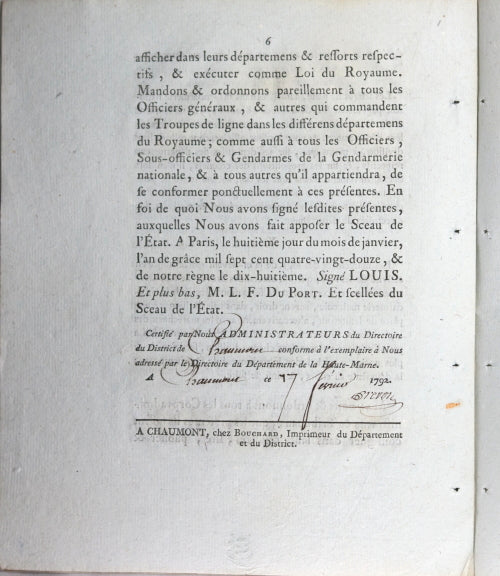 6
afficher dans leurs départemens & ressorts respec-
tifs, & exécuter comme Loi du Royaume.
Mandons & ordonnons pareillement à tous les
Officiers généraux, & autres qui commandent
les Troupes de ligne dans les différens départemens
du Royaume; comme aussi à tous les Officiers,
Sous-officiers & Gendarmes de la Gendarmerie
nationale, & à tous autres qu'il appartiendra, de
se conformer ponctuellement à ces présentes. En
foi de quoi Nous avons signé lesdites présentes,
auxquelles Nous avons fait apposer le Sceau de
l'État. A Paris, le huitième jour du mois de janvier,
l'an de grâce mil sept cent quatre-vingt-douze, &
de notre règne le dix-huitième. Signé LOUIS.
Et plus bas, M. L. F. DU PORT. Et scellées du
Sceau de l'État.
Certifié par Nous ADMINISTRATEURS du Directoire
du District de Chaumont conforme à l'exemplaire à Nous
adressé par le Directoire du Département de la Haute-Marne.
A Chaumont ce 17 février 1792.
A CHAUMONT, chez BOUCHARD, Imprimeur du Département
et du District.